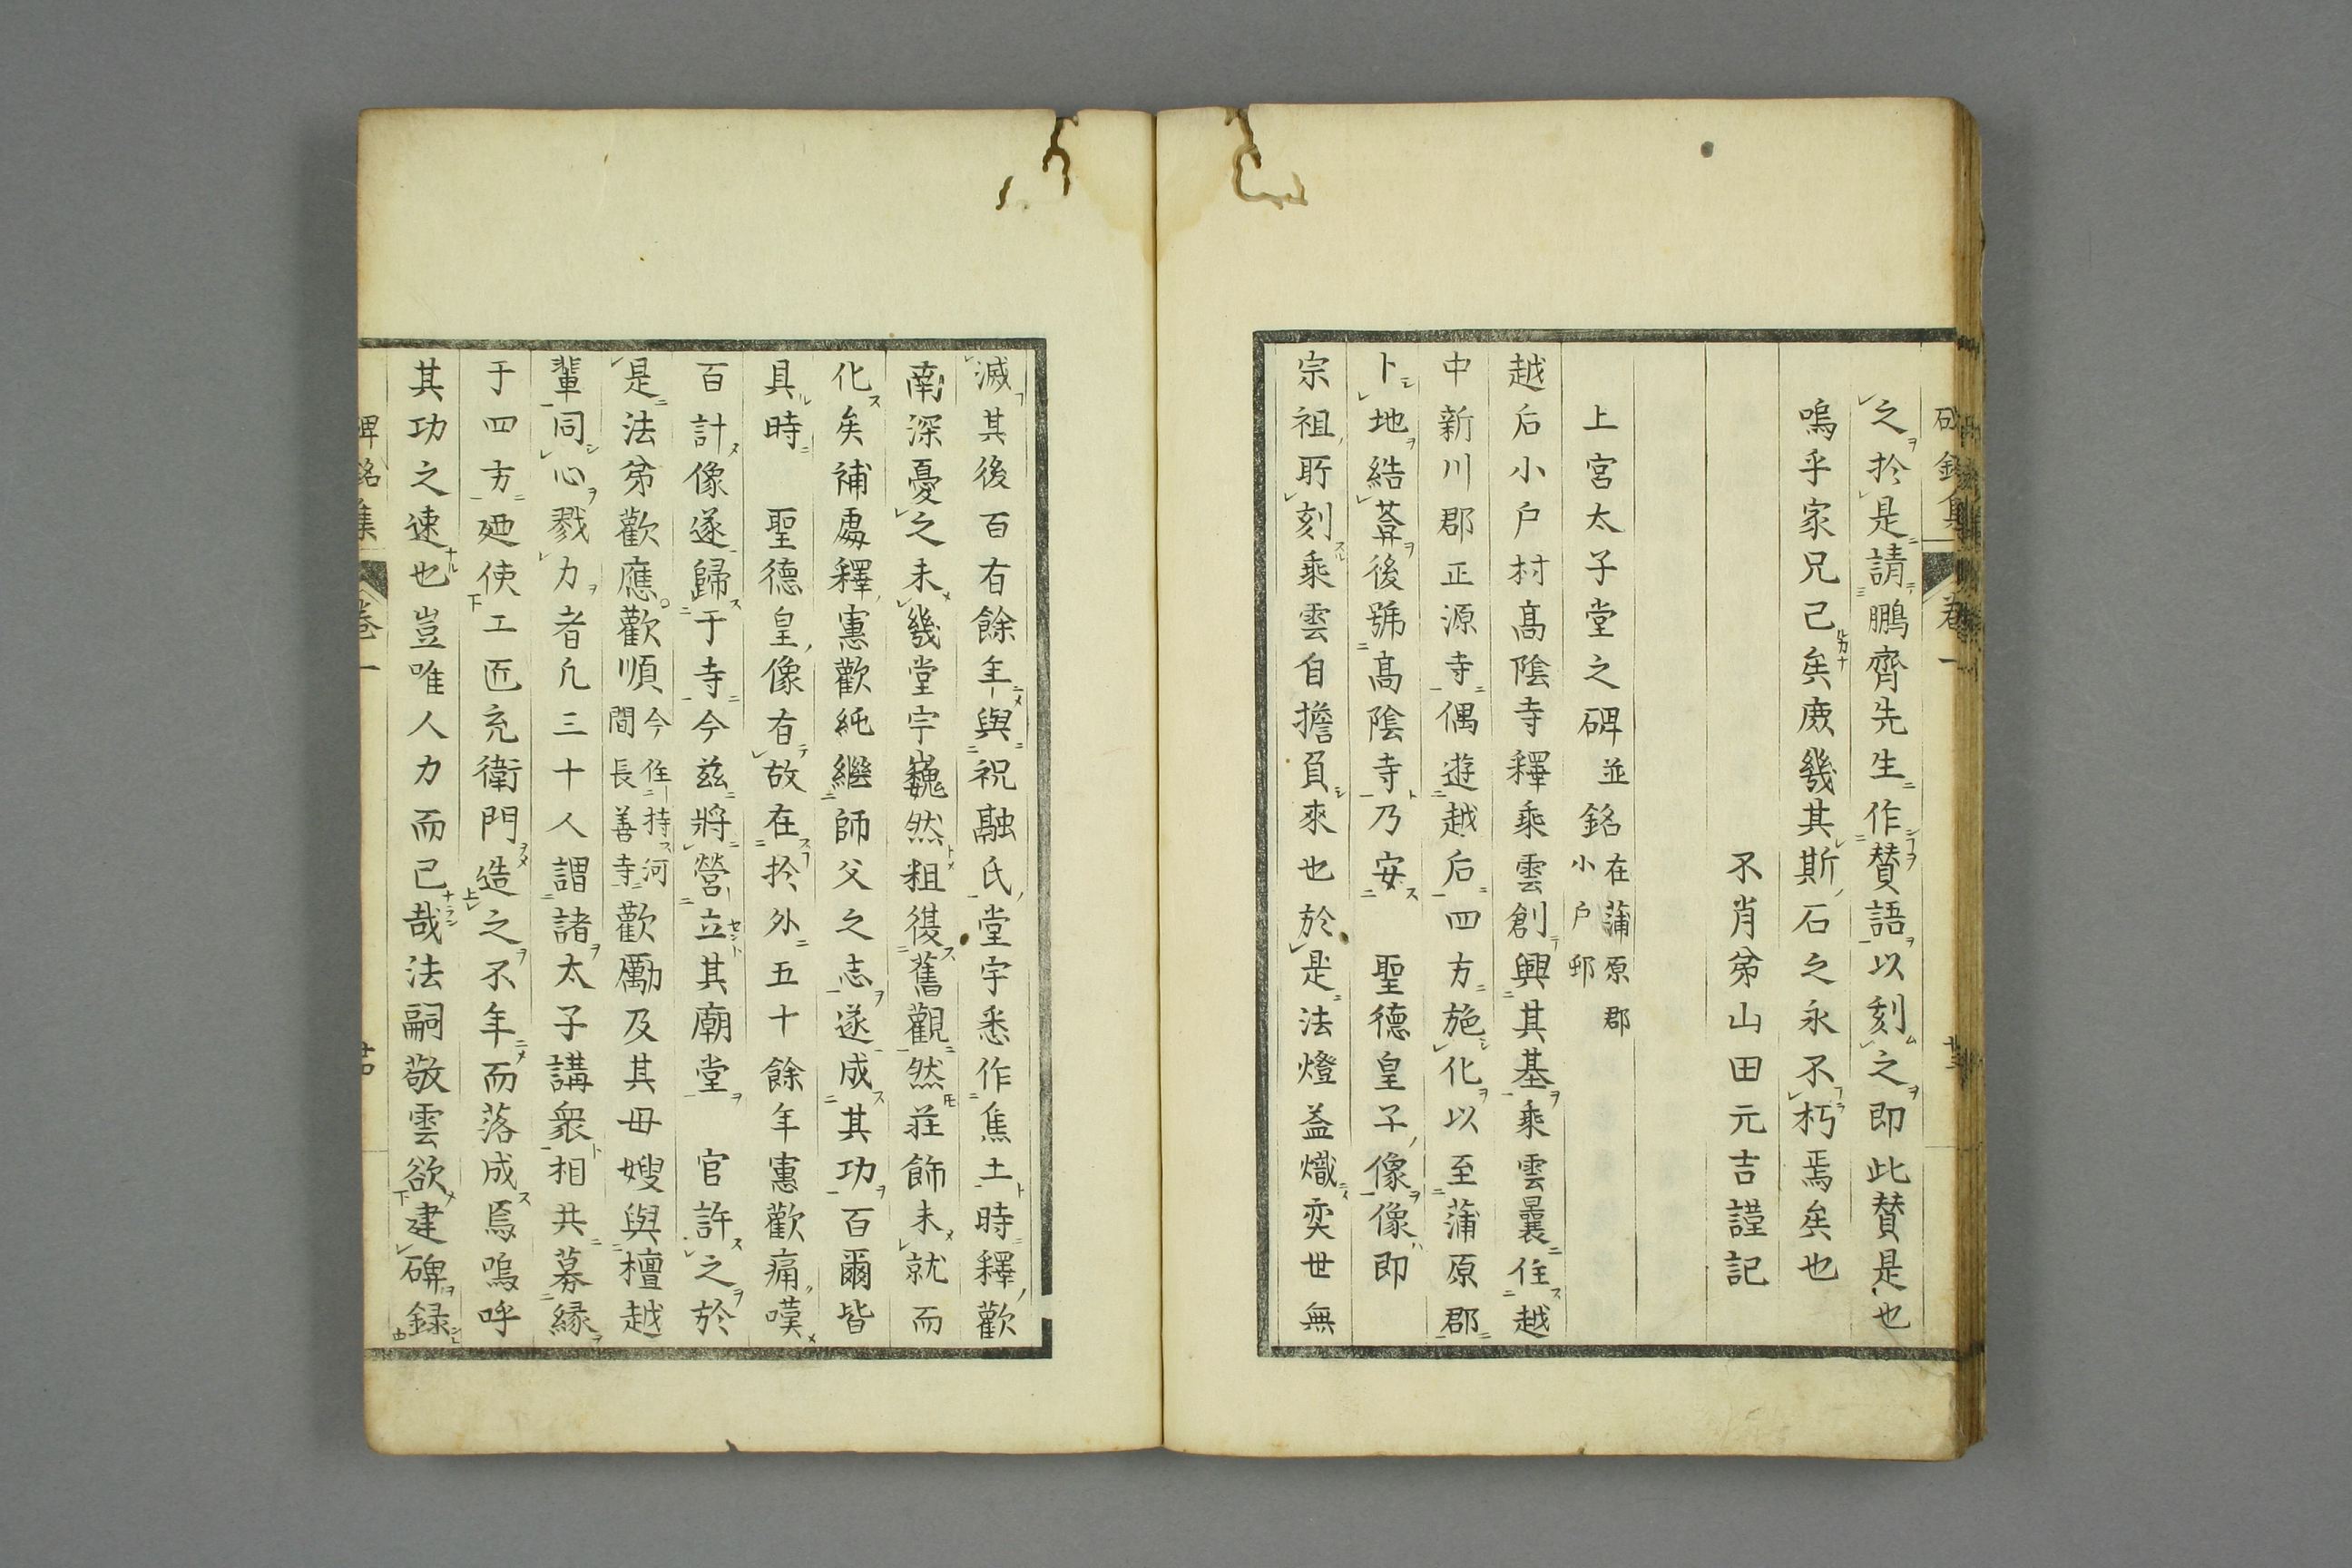 之於是請鵬齊先生作賛語以刻之即此賛是也
嗚乎家兄已矣庻幾其斯石之永不朽焉矣也
不肖弟山田元吉謹記
上宮太子堂之碑並銘在蒲原郡小戶邨
越后小户村髙隂寺釋乘雲創興其基乘雲曩住越
中新川郡正源寺偶遊越后四方施化以至蒲原郡
卜地結葊後號髙隂寺乃安　聖德皇子像像即
宗祖所刻乘雲自擔負來也於是法燈益熾奕世無
滅其後百有餘年與祝融氏堂宇悉作焦土時釋歡
南深憂之未幾堂宇巍然粗復舊觀然莊飾未就而
化矣補處釋憲歡純繼師父之志遂成其功百爾皆
具時　聖德皇像有故在於外五十餘年憲歡痛嘆
百計像遂歸于寺今茲將營立其廟堂　官許之於
是法弟歡應歡順今住持河間長善寺歡勵及其母嫂與檀越
輩同心戮力者凢三十人謂諸太子講衆相共募緣
于四方廼使工匠充衛門造之不年而落成焉嗚呼
其功之速也豈唯人力而已哉法嗣敬雲欲建碑録
碑銘集
卷一